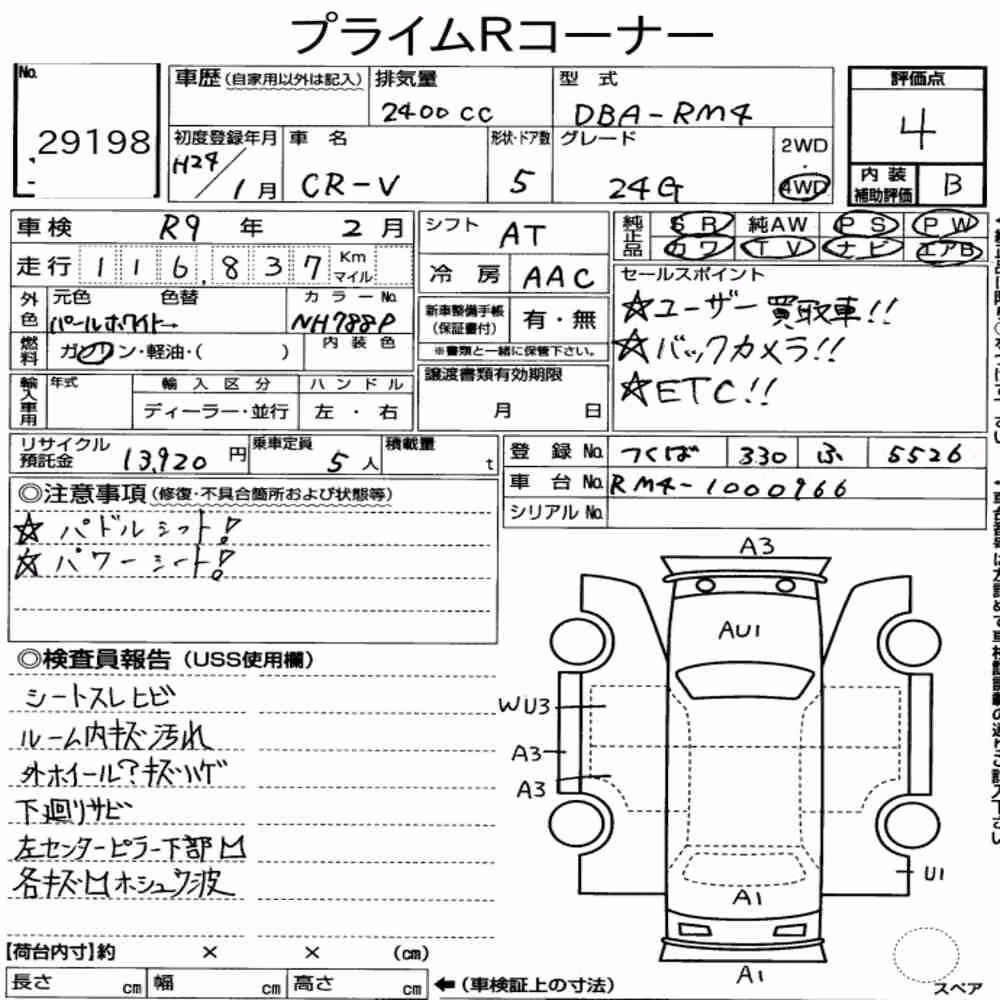 プライムRコーナー
No. 29198
車歴 (自家用以外は記入)
排気量 2400cc
型式 DBA-RM4
評価点 4
初度登録年月 H24/1月
車名 CR-V
形状・ドア数 5
グレード 24G
2WD・4WD
内装補助評価 B
車検 R9年 2月
シフト AT
純正品 SR 純AW PS PW
カワ TV ナビ エアB
走行 116,837 Km マイル
冷房 AAC
セールスポイント
☆ユーザー買取車!!
☆バックカメラ!!
☆ETC!!
外色 元色 色替 パールホワイト→
カラーNo. NH788P
新車整備手帳 (保証書付) 有・無
※書類と一緒に保管下さい。
燃料 ガソリン・軽油・( )
内装色
輸入車用 年式
輸入区分 ディーラー・並行
ハンドル 左・右
譲渡書類有効期限
月 日
リサイクル預託金 13,920円
乗車定員 5人
積載量 t
登録No. つくば 330 ふ 5526
車台No. RM4-1000966
シリアルNo.
◎注意事項 (修復・不具合箇所および状態等)
☆パドルシフト!
☆パワーシート!
◎検査員報告 (USS使用欄)
シートスレヒビ
ルーム内キズ汚れ
外ホイール?キズハゲ
下廻リサビ
左センターピラー下部凹
各キズ凹ホシュウ波
A3
AU1
WU3
A3
A3
U1
A1
A1
【荷台内寸】約 × × (cm)
長さ cm 幅 cm 高さ cm ←(車検証上の寸法)
スペア